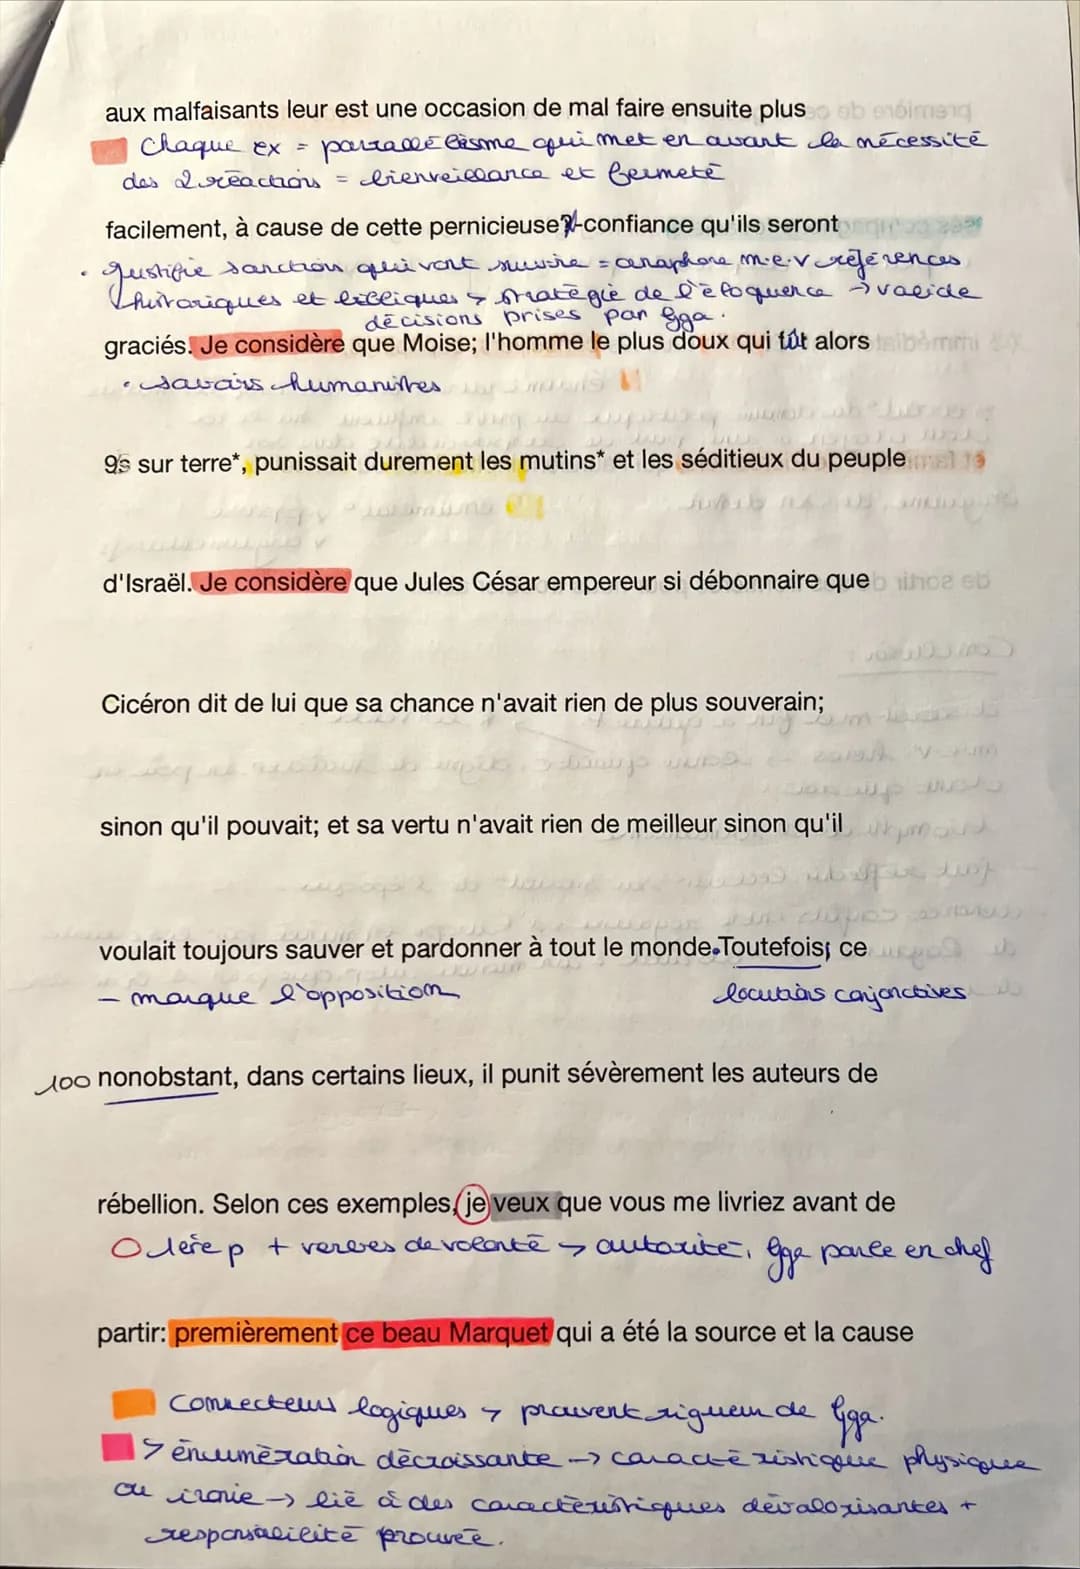 aux malfaisants leur est une occasion de mal faire ensuite plus
Chaque ex = parallélisme qui met en avant la nécessité
des 2 réactions = bienveillance et fermeté
facilement, à cause de cette pernicieuse confiance qu'ils seront
• Justifie sanction qui vont suivre = anaphore m.e.v références
historiques et bibliques → stratégie de l'éloquence → valide
décisions prises par Gga.
graciés. Je considère que Moise; l'homme le plus doux qui fût alors
• savoirs humanistes
95 sur terre*, punissait durement les mutins* et les séditieux du peuple
d'Israël. Je considère que Jules César empereur si débonnaire que
Cicéron dit de lui que sa chance n'avait rien de plus souverain;
sinon qu'il pouvait; et sa vertu n'avait rien de meilleur sinon qu'il
voulait toujours sauver et pardonner à tout le monde. Toutefois; ce
– marque l'opposition locutions conjonctives
100 nonobstant, dans certains lieux, il punit sévèrement les auteurs de
rébellion. Selon ces exemples, je veux que vous me livriez avant de
1ère p + verbes de volonté → autorité, Gga parle en chef
partir: premièrement ce beau Marquet qui a été la source et la cause
Connecteurs logiques → prouvent rigueur de Gga.
> énumération décroissante → caractéristique physique
ou ironie → lié à des caractéristiques dévalorisantes +
responsabilité prouvée.